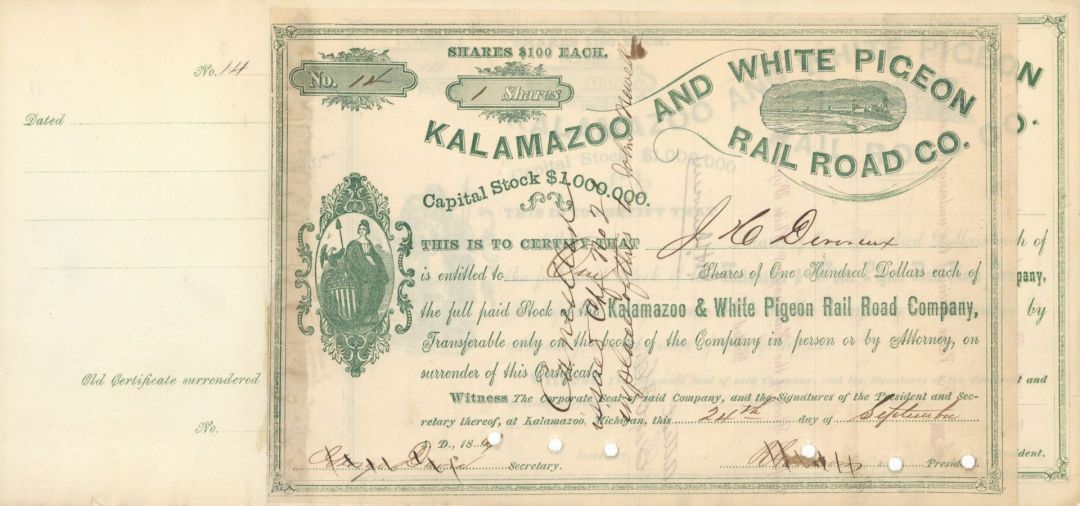 No. 14
Dated
Old Certificate surrendered
No.
SHARES $100 EACH.
No. 14
1 Shares
KALAMAZOO AND WHITE PIGEON
RAIL ROAD CO.
Capital Stock $1,000,000.
THIS IS TO CERTIFY THAT J H Devereux
is entitled to One Shares of One Hundred Dollars each of
the full paid Stock of the Kalamazoo & White Pigeon Rail Road Company,
Transferable only on the books of the Company in person or by Attorney, on
surrender of this Certificate.
Witness The Corporate Seal of said Company, and the Signatures of the President and Sec-
retary thereof, at Kalamazoo, Michigan, this 24th day of September
A. D., 18
Secretary.
President.
Cancelled
issued Ctf No 2
in place of this to John Newell
N
O.
h of
pany,
by
t and
ident.